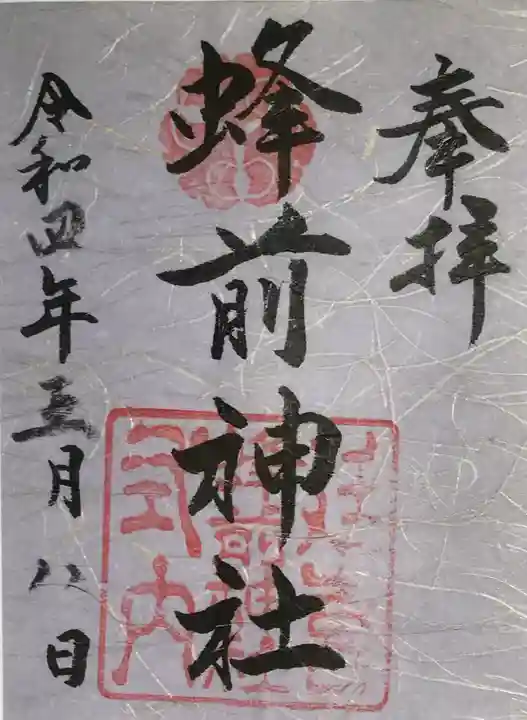 奉拝
蜂前神社
令和四年五月八日